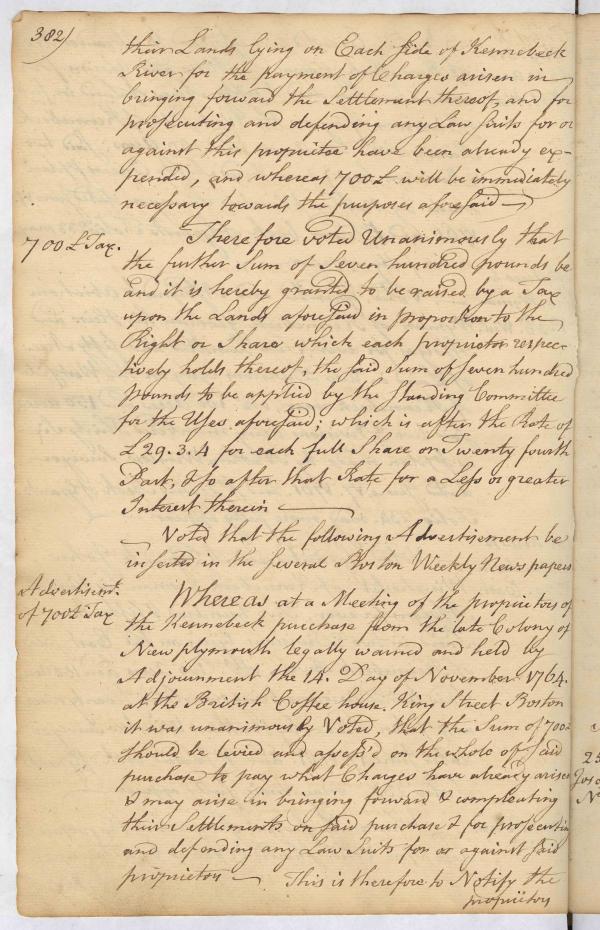 382)
their Lands lying on Each side of Kennebeck
River for the payment of Charges arisen in
bringing forward the Settlement thereof, and for
prosecuting and defending any Law suits for or
against this proprietee have been already ex-
pended, and whereas 700£ will be immediately
necessary towards the purposes aforesaid —
700£ Tax.
Therefore voted Unanimously that
the further Sum of Seven hundred pounds be
and it is hereby granted to be raised by a Tax
upon the Lands aforesaid in proportion to the
Right or Share which each proprietor respec-
tively holds thereof, the said Sum of Seven hundred
pounds to be applied by the Standing Committee
for the Uses aforesaid; which is after the Rate of
£29.3.4 for each full Share or Twenty fourth
Part, & so after that Rate for a Less or greater
Interest therein —
— Voted that the following Advertisement be
inserted in the several Boston Weekly News papers
Advertisemt.
of 700£ Tax
Whereas at a Meeting of the proprietors of
the Kennebeck purchase from the late Colony of
New plymouth legally warned and held by
Adjournment the 14. Day of November 1764.
at the British Coffee house King Street Boston
it was unanimously Voted, that the Sum of 700£
should be levied and assess'd on the whole of said
purchase to pay what Charges have already arisen
& may arise in bringing forward & compleating
their Settlements on said purchase & for prosecuting
and defending any Law Suits for or against said
proprietors — This is therefore to Notify the
proprietors
25
No